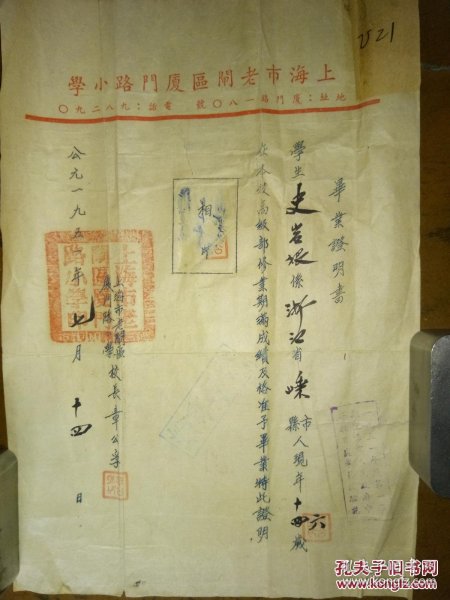 上海市老閘區廈門路小學
地址：廈門路一八〇號 電話：九八二九〇
畢業證明書
學生史岩係浙江省嵊市縣人現年十四六歲
在本校高級部修業期滿成績及格准予畢業特此證明
相
上海市老閘區
廈門路小學校長章公
公元一九五年七月十四日
孔夫子旧书网
www.kongfz.com